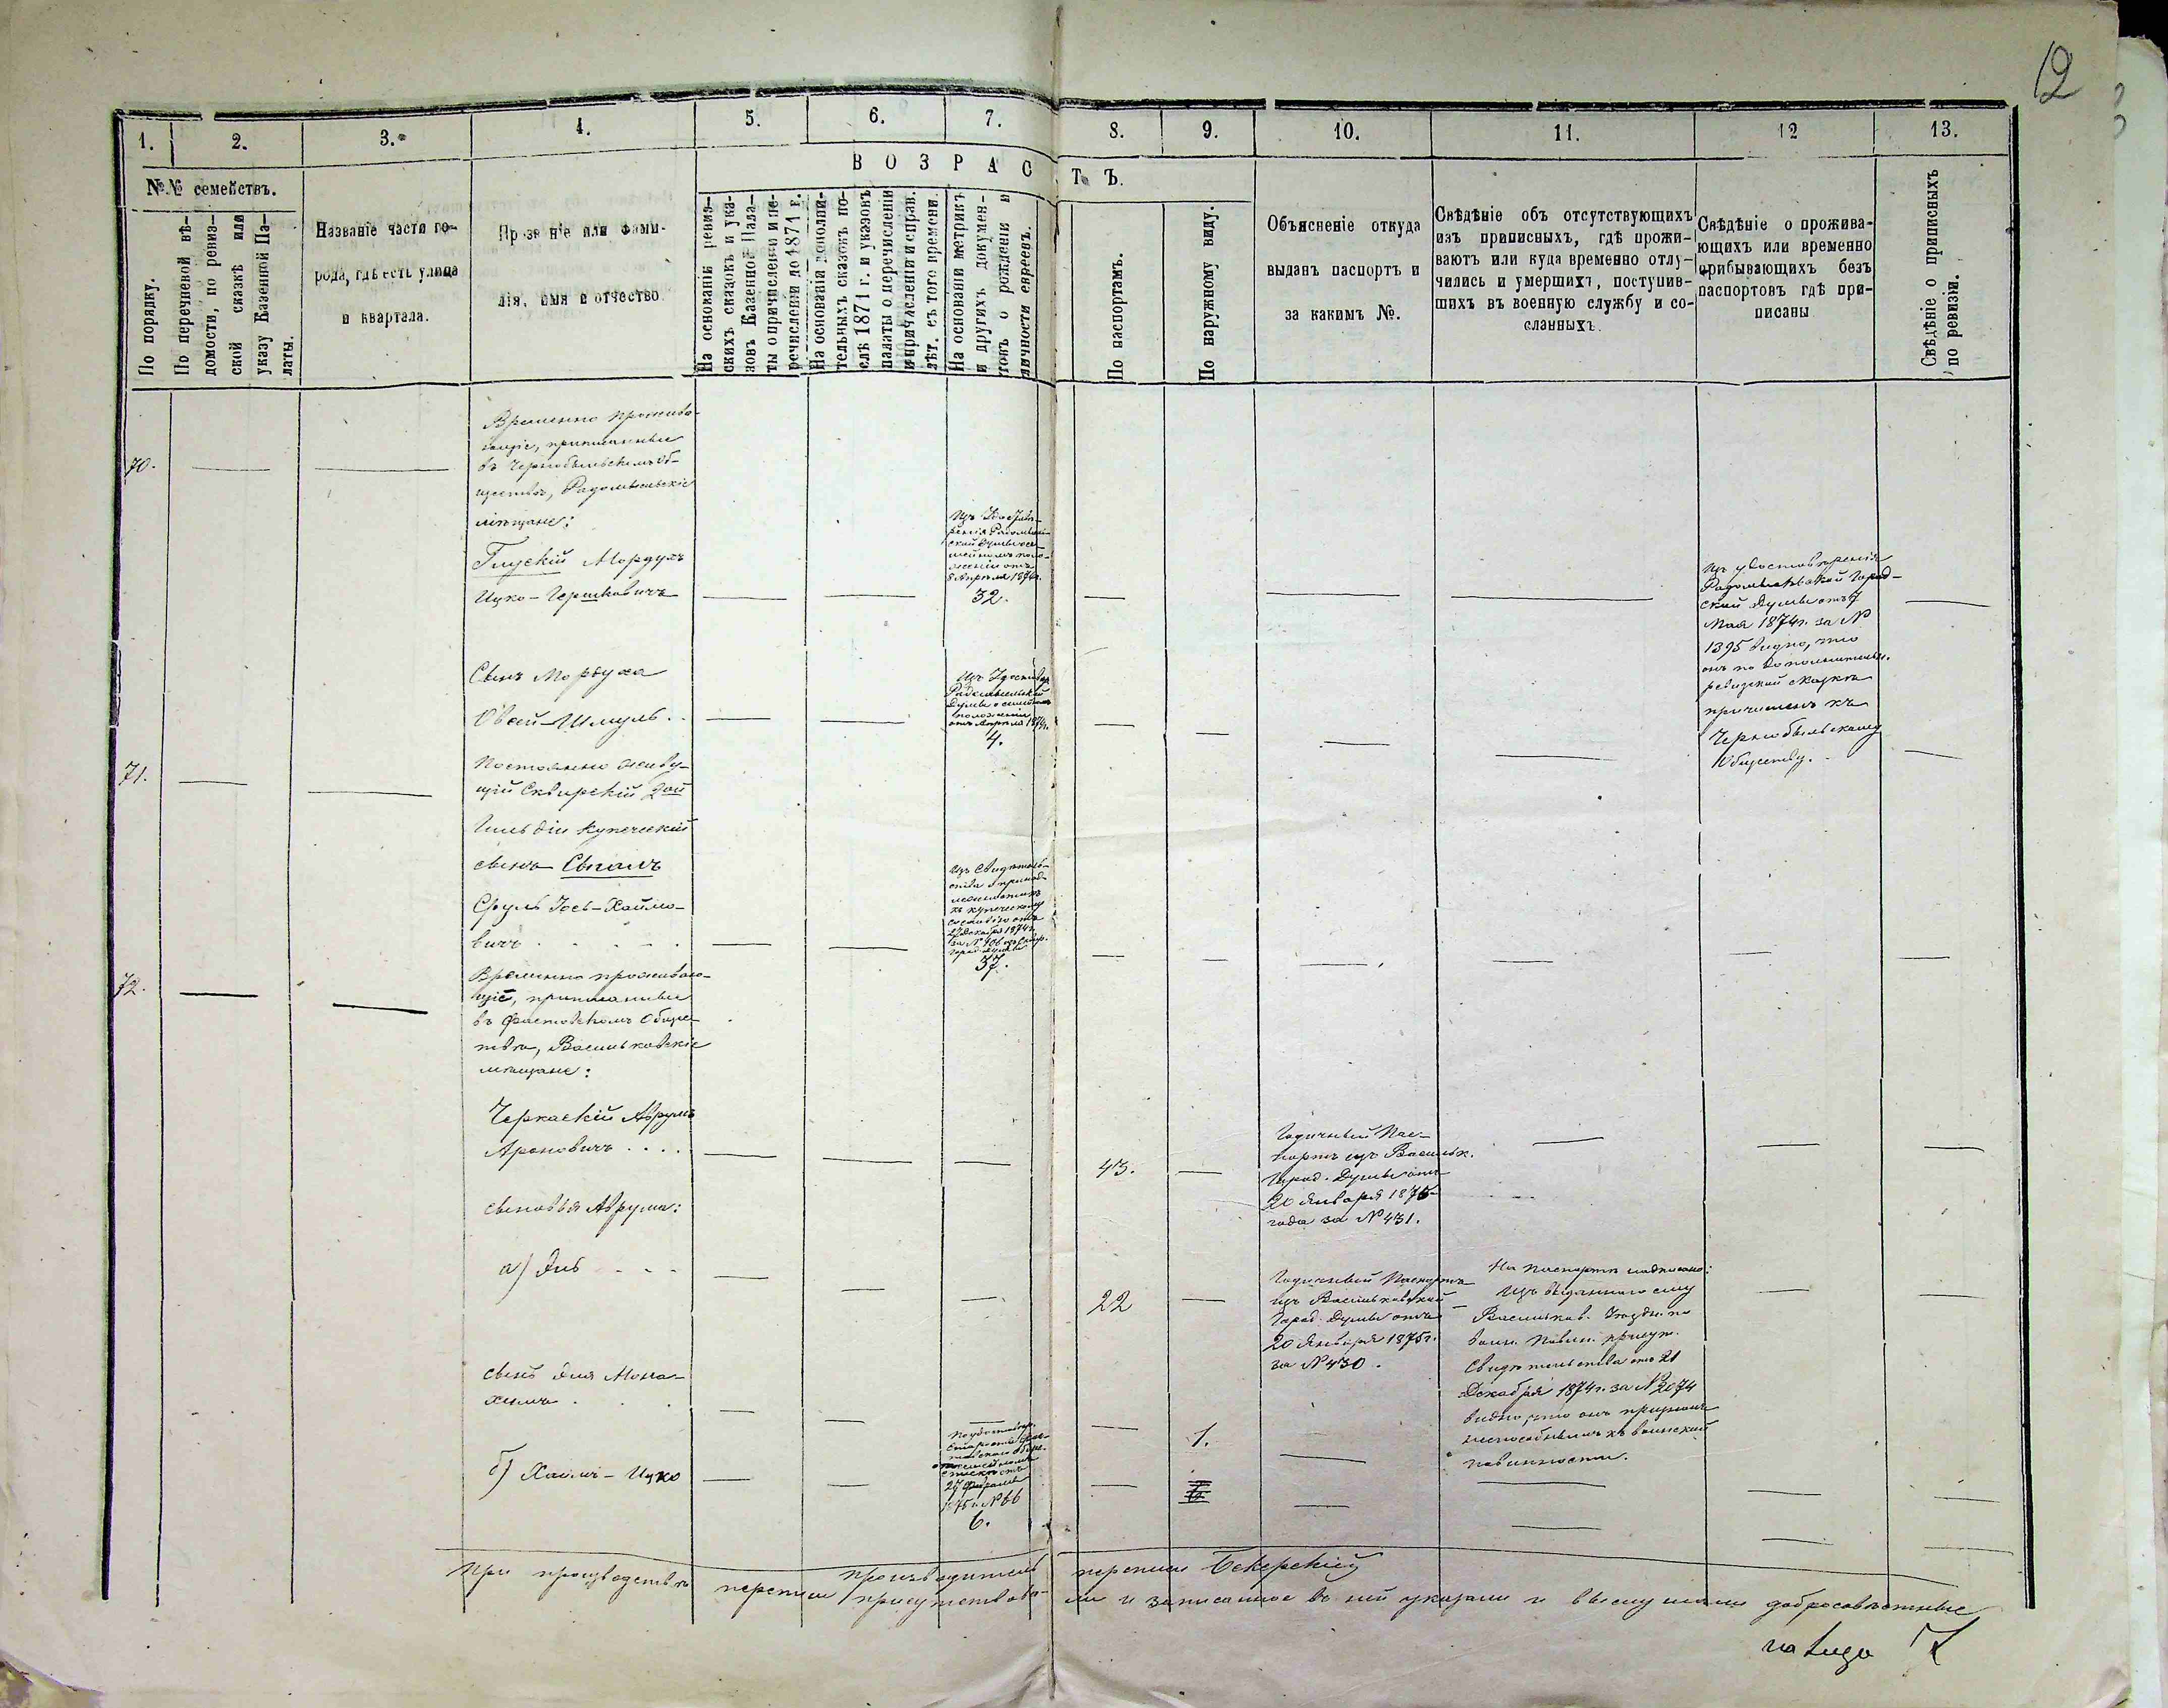 12
1.
2.
3.
4.
5.
6.
7.
8.
9.
10.
11.
12
13.
В О З Р А С
Т Ъ.
№№ семействъ.
По порядку.
По перечневой вѣ-
домости, по ревиз-
ской сказкѣ или
указу Казенной Па-
латы.
Названіе части го-
рода, гдѣ есть улица
и квартала.
Прозваніе или фами-
лія, имя и отчество
На основаніи ревиз-
скихъ сказокъ и ука-
зовъ Казенной Пала-
ты о причисленіи и пе-
речисленіи до 1871 г.
На основаніи дополни-
тельныхъ сказокъ по-
слѣ 1871 г. и указовъ
палаты о перечисленіи
и причисленіи и справ.
лѣт. съ того времени.
На основаніи метрикъ
и другихъ докумен-
товъ о рожденіи и
личности евреевъ.
По паспортамъ.
По наружному виду.
Объясненіе откуда
выданъ паспортъ и
за какимъ №.
Свѣдѣніе объ отсутствующихъ
изъ приписныхъ, гдѣ прожи-
ваютъ или куда временно отлу-
чились и умершихъ, поступив-
шихъ въ военную службу и со-
сланныхъ.
Свѣдѣніе о прожива-
ющихъ или временно
прибывающихъ безъ
паспортовъ гдѣ при-
писаны
Свѣдѣніе о приписныхъ
по ревизіи.
70.
Временно прожива-
ющіе, приписанные
въ Чернобыльскомъ об-
ществѣ, Радомысльскіе
мѣщане:
Глускій Мордухъ
Ицко-Гершковичъ
Изъ Удостовѣ-
ренія Радомысль-
ской Думы о се-
мейномъ поло-
женіи отъ
8 Апрѣля 1874г.
32.
Изъ удостовѣренія
Радомысльской Город-
ской Думы отъ 7
Мая 1874г. за №
1395 видно, что
онъ по дополнительн.
ревизской сказкѣ
причисленъ къ
Чернобыльскому
Обществу.
Сынъ Мордуха
Овсей-Шмуль..
Изъ Удостовѣр.
Радомысльской
Думы о семейномъ
положеніи
отъ Апрѣля 1874г.
4.
71.
Постоянно живу-
щій Сквирскій 2ой
Гильдіи купеческій
сынъ Сыпамъ
Сруль Іось-Хаймо-
вичъ
Изъ Свидѣтель-
ства о принад-
лежности
къ купеческому
сословію отъ
27 Декабря 1874г.
за № 906 изъ Сквир.
Город. Думы
37.
72.
Временно проживаю-
щіе, приписанные
въ Фастовскомъ Обще-
ствѣ, Васильковскіе
мѣщане:
Черкаскій Аврумъ
Ароновичъ....
43.
Годичный Пас-
портъ изъ Васильк.
Город. Думы отъ
20 Января 1875
года за № 431.
сыновья Аврума:
а) Янь
22
Годичный Паспортъ
изъ Васильковской
Город. Думы отъ
20 Января 1875г.
за № 430.
На паспортѣ надписано:
Изъ выданнаго ему
Васильков. Уѣздн. по
воин. повин. присут.
Свидѣтельства отъ 21
Декабря 1874г. за № 2074
видно, что онъ признанъ
неспособнымъ къ воинской
повинности.
сынъ Яня Мона-
химъ
1.
б) Хаимъ-Ицко
27 Февраля
1875 г. № 66
6.
Производитель переписи Бекерскій
При производствѣ переписи присутствова- ли и записанное въ ней указали и выслушали добросовѣстные